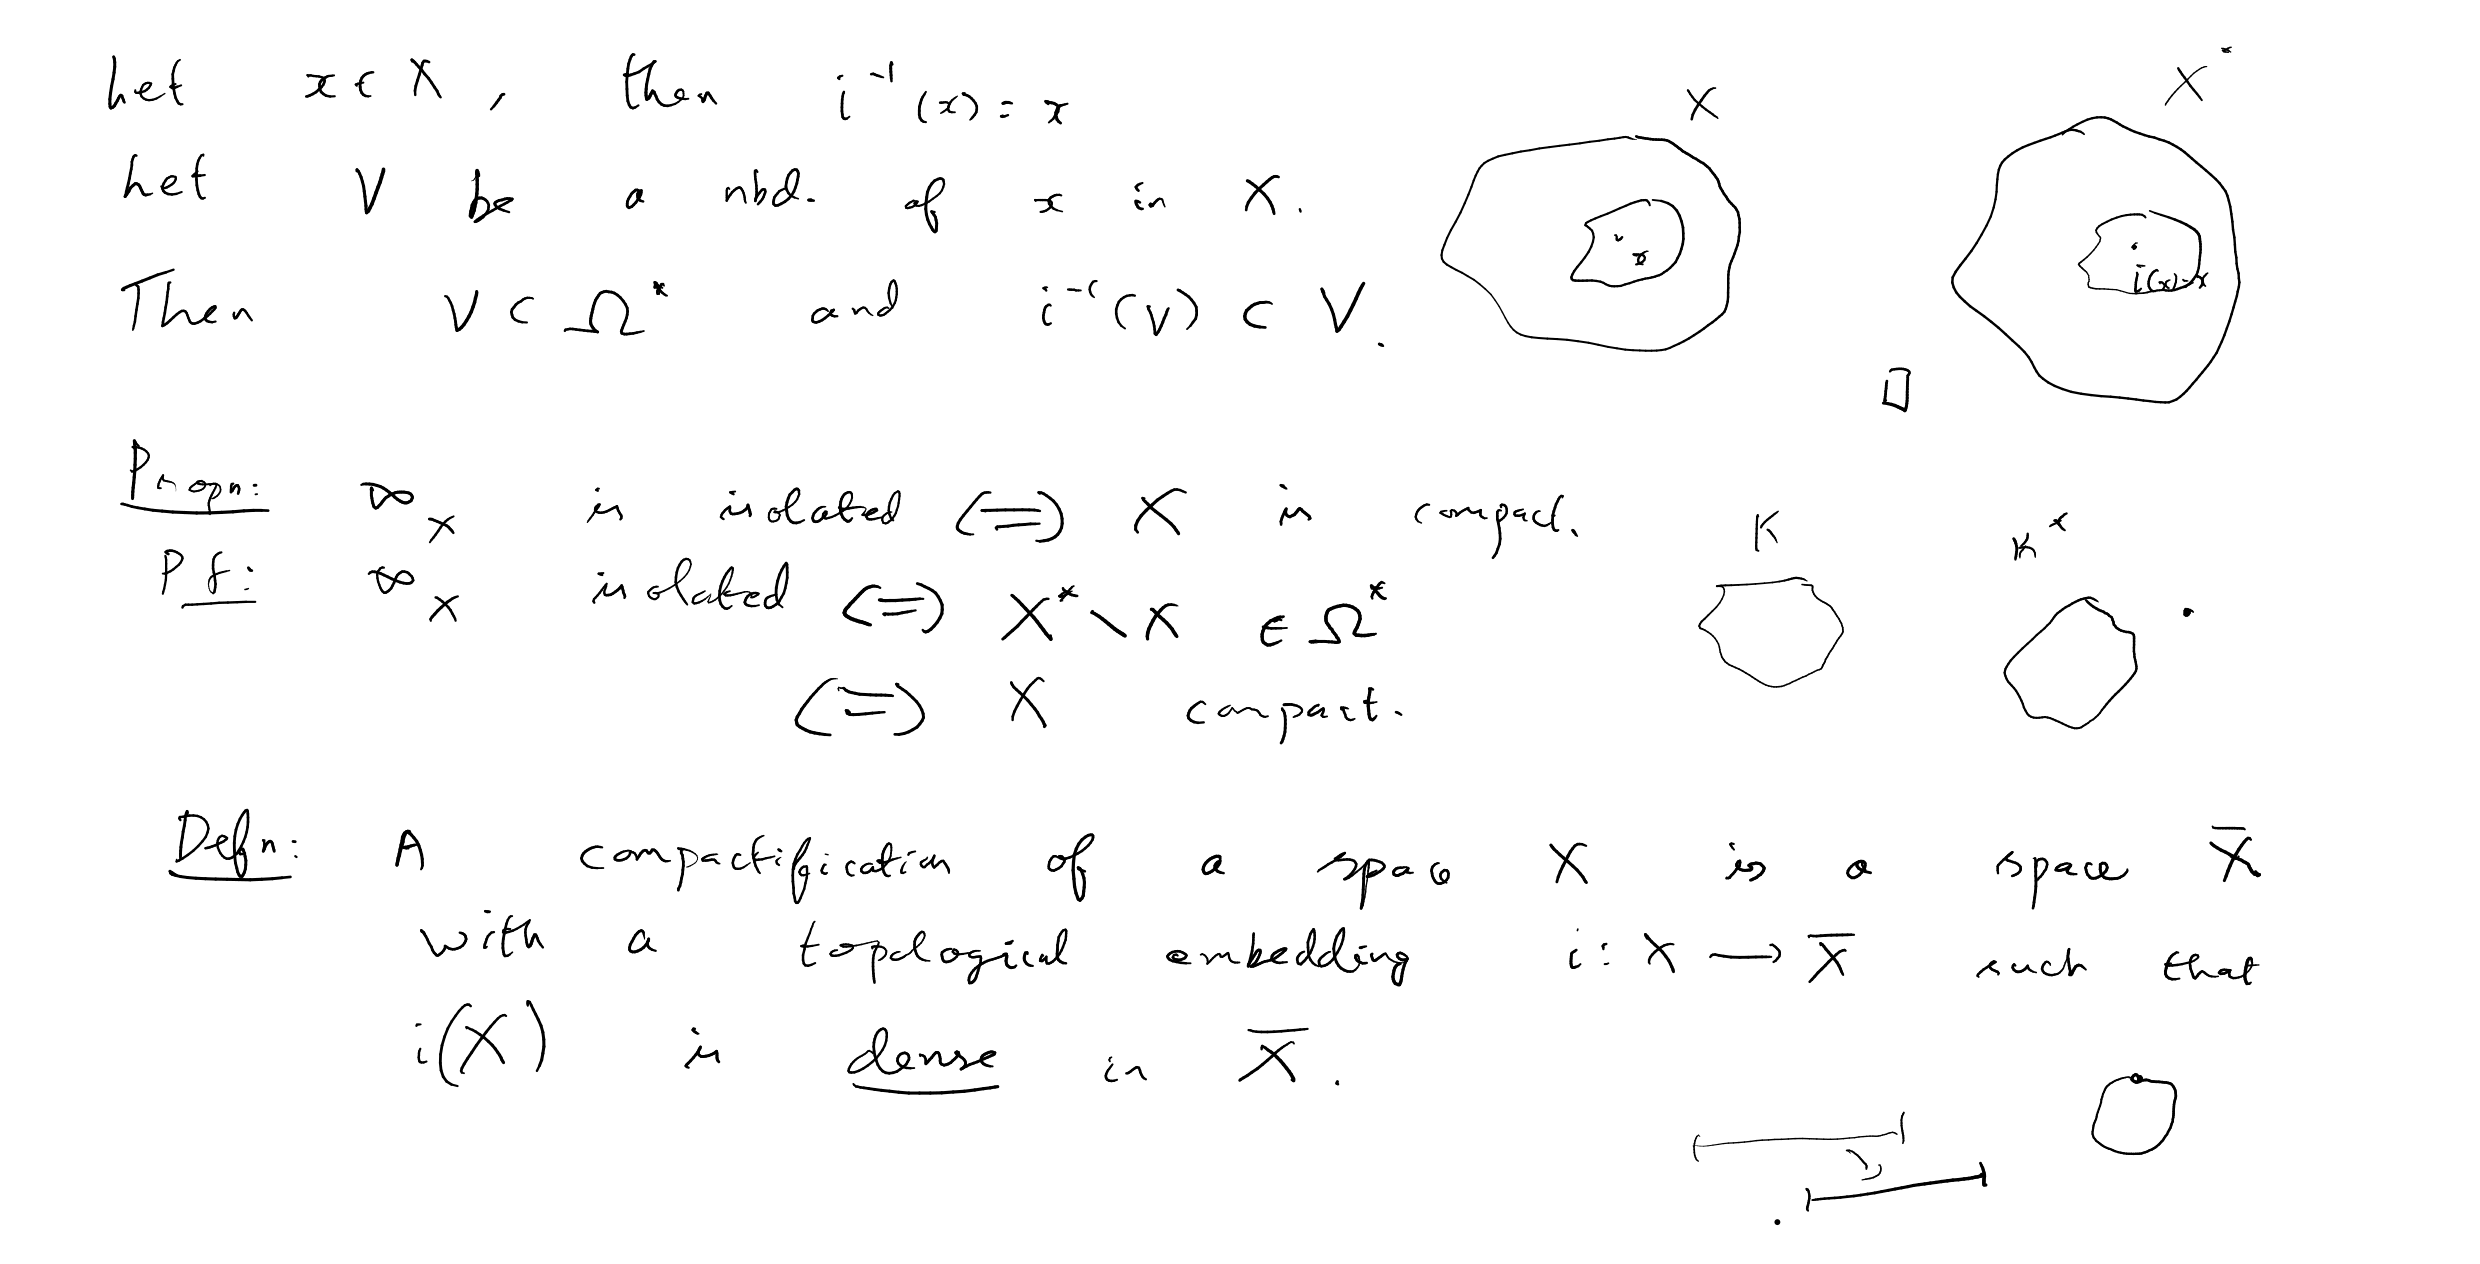 Let x ∈ X, then i⁻¹(x) = x
Let V be a nbd. of x in X.
Then V ⊂ Ω* and i⁻¹(V) ⊂ V.
X
x
X*
i(x)=x
□
Propn: ∞_X is isolated (=) X is compact.
Pf: ∞_X isolated (=) X* \ X ∈ Ω*
(=) X compact.
K
K*
Defn: A compactification of a space X is a space X̅
with a topological embedding i: X ⟶ X̅ such that
i(X) is dense in X̅.